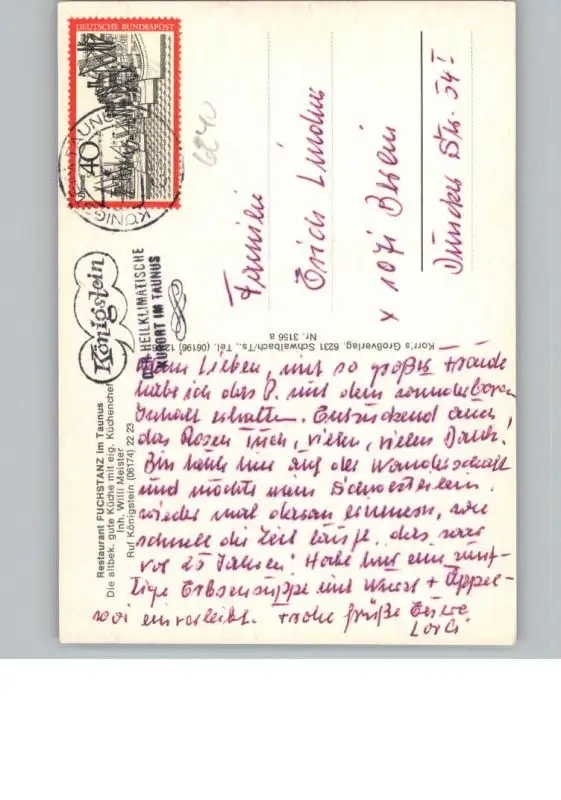 DEUTSCHE BUNDESPOST
40
KÖNIGSTEIN TAUNUS
6240
Königstein
HEILKLIMATISCHER
KURORT IM TAUNUS
Familie
Erich Lindner
X 1071 Berlin
Str. 54 I
Korr's Großverlag, 6231 Schwalbach/Ts., Tel. (06196)
Nr. 3156 a
Restaurant FUCHSTANZ im Taunus
Die altbek. gute Küche mit eig. Küchenchef
Inh. Willi Meister
Ruf Königstein (06174) 22 23
Meine Lieben, mit so großer Freude
habe ich das P. mit dem wunderbaren
Inhalt erhalten. Entzückend auch
das Rosen Tuch, vielen, vielen Dank!
Bin heute hier auf der Wanderschaft
und möchte mein Schwesterlein
wieder mal daran erinnern, wie
schnell die Zeit läuft, das war
vor 25 Jahren! Habe hier eine zünf-
tige Erbsensuppe mit Wurst + Äppel-
woi einverleibt. Frohe Grüße Eure